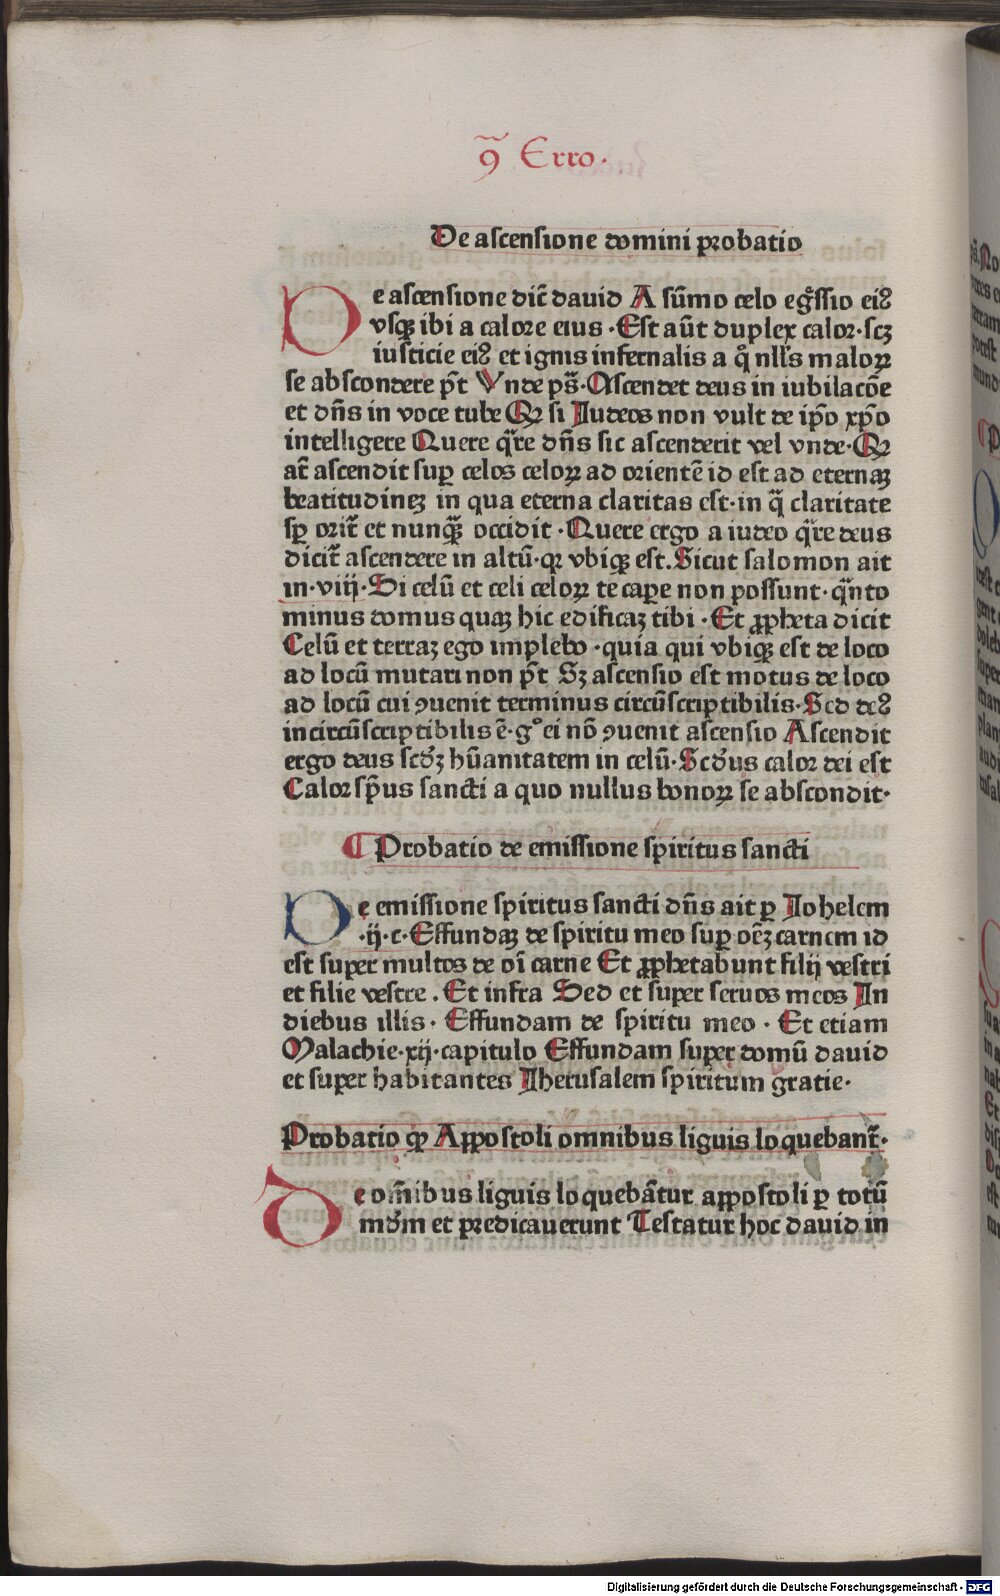 ꝯ̃ Erro.
De ascensione domini probatio
De ascensione dic̃ dauid A sũmo celo egr̃ssio eiꝰ
vsqꝫ ibi a calore eius · Est aũt duplex calor · scꝫ
iusticie eiꝰ et ignis infernalis a qͦ nllꝰs maloꝝ
se abscondere pt̃ Vnde ps̃ · Ascendet deus in iubilacõe
et dñs in voce tube Qꝛ si Iudeos non vult de ip̃o xp̃o
intelligere Quere qͣre dñs sic ascenderit vel vnde · Qꝛ
at̃ ascendit suꝑ celos celoꝝ ad orientẽ id est ad eternaꝫ
beatitudineꝫ in qua eterna claritas est · in qͣ claritate
sꝑ orit̃ et nunqͣꝫ occidit · Quere ergo a iudeo qͣre deus
dicit̃ ascendere in altũ · qꝛ vbiqꝫ est. Sicut salomon ait
in · viij · Si celũ et celi celoꝝ te caꝑe non possunt · qͣnto
minus domus quaꝫ hic edificaꝫ tibi · Et ꝓpheta dicit
Celũ et terraꝫ ego implebo · quia qui vbiqꝫ est de loco
ad locũ mutari non pt̃ Sꝫ ascensio est motus de loco
ad locũ cui ꝯuenit terminus circũscriptibilis · Sed deꝰ
incircũscriptibilis ẽ · gͦ ei nõ ꝯuenit ascensio Ascendit
ergo deus scd̃ꝫ hũanitatem in celũ · Scd̃us calor dei est
Calor sp̃us sancti a quo nullus bonoꝝ se abscondit ·
¶ Probatio de emissione spiritus sancti
De emissione spiritus sancti dñs ait ꝑ Iohelem
· ij · c · Effundaꝫ de spiritu meo suꝑ oẽꝫ carnem id
est super multos de oĩ carne Et ꝓphetabunt filij vestri
et filie vestre . Et infra Sed et super seruos meos In
diebus illis · Effundam de spiritu meo · Et etiam
Malachie · xij · capitulo Effundam super domũ dauid
et super habitantes Iherusalem spiritum gratie ·
Probatio qꝙ Appostoli omnibus liguis loquebant̃ ·
De om̃ibus liguis loquebãtur appostoli ꝑ totũ
mdm̃ et predicauerunt Testatur hoc dauid in
Digitalisierung gefördert durch die Deutsche Forschungsgemeinschaft - DFG